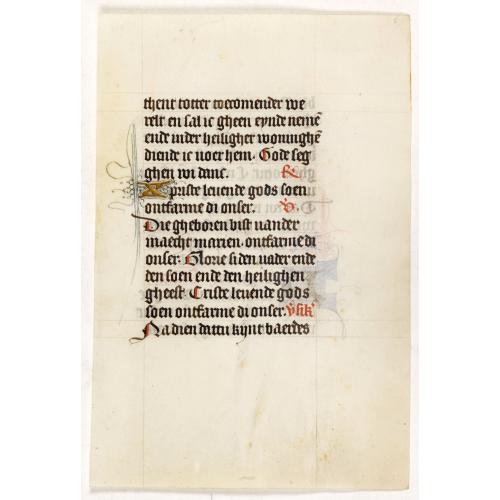 thent totter toecomender we
relt en sal ic gheen eynde nemē
ende inder heiligher woninghē
diende ic voer hem. Gode seg
ghen wi danc. R
Xpriste levende gods soen
ontfarme di onser. V.
Die gheboren bist vander
maecht marien. ontfarme di
onser. Glorie si den vader ende
den soen ende den heilighen
gheest. Criste levende gods
soen ontfarme di onser. v̄sik'
Na dien dattu kynt baerdes